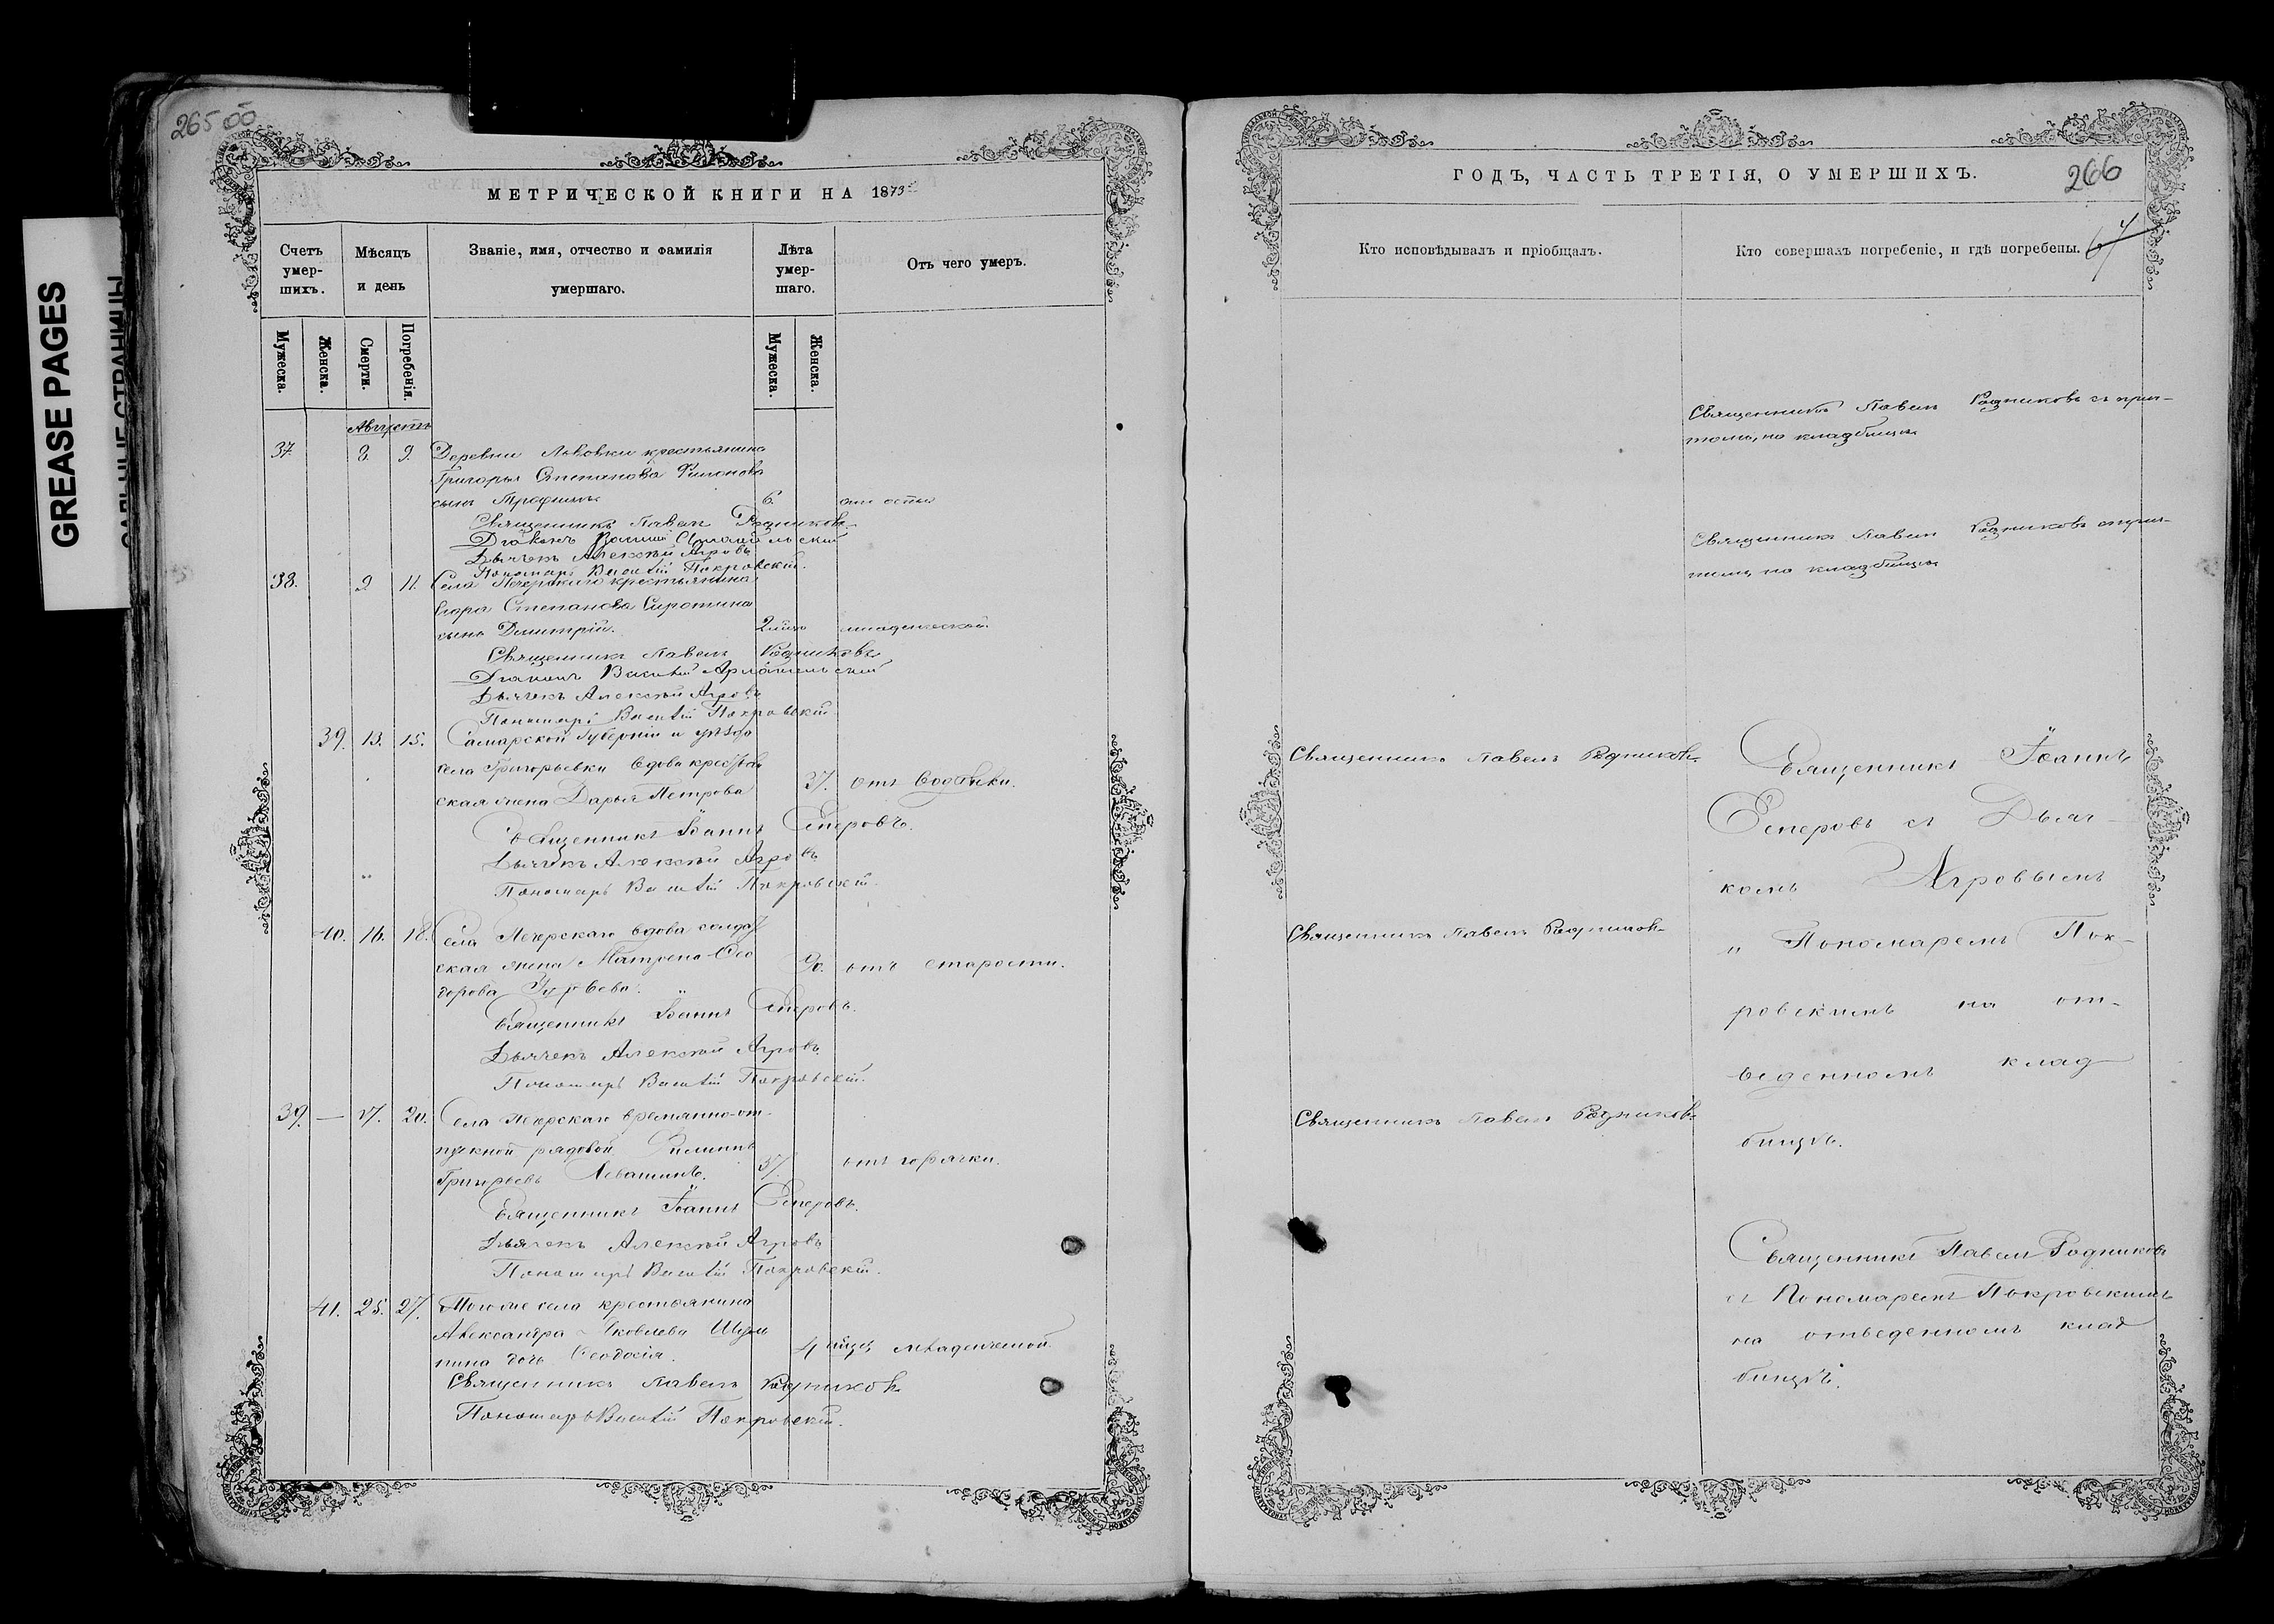 265 об
МЕТРИЧЕСКОЙ КНИГИ НА 1873
Счетъ умер-шихъ.
Мѣсяцъ и день
Званіе, имя, отчество и фамилія умершаго.
Лѣта умер-шаго.
Отъ чего умеръ.
Мужеска.
Женска.
Смерти.
Погребенія.
Мужеска.
Женска.
Августъ
37. 8. 9. Деревни Львовки крестьянина
Григорья Степанова Филонова
сынъ Трофимъ 6. отъ оспы
Священникъ Павелъ Родниковъ
Діаконъ Василій
Дьячекъ Алексѣй Агровъ
Пономарь Василій Покровскій.
38. 9 11. Села Печерскаго крестьянина
Егора Степанова Сиротина
сынъ Димитрій. 2 мѣся младенческой.
Священникъ Павелъ Родниковъ
Діаконъ Василій
Дьячекъ Алексѣй Агровъ
Пономарь Василій Покровскій
39. 13. 15. Самарской Губерніи и уѣзда
села Григорьевки вдова крестьян
ская жена Дарья Петрова 37. отъ водянки.
Священникъ Іоаннъ Есперовъ.
Дьячекъ Алексѣй Агровъ
Пономарь Василій Покровскій.
40. 16. 18. Села Печерскаго вдова солдат
ская жена Матрена Ѳео
дорова Гурьева. 90. отъ старости.
Священникъ Іоаннъ Есперовъ.
Дьячекъ Алексѣй Агровъ.
Пономарь Василій Покровскій.
39. — 17. 20. Села Печерскаго временно-от-
пускной рядовой Филиппъ
Григорьевъ Левашинъ. 37. отъ горячки.
Священникъ Іоаннъ Есперовъ.
Дьячекъ Алексѣй Агровъ
Пономарь Василій Покровскій.
41. 25. 27. Того же села крестьянина
Александра Яковлева
дочь Ѳеодосія. 4 мѣся младенческой.
Священникъ Павелъ Родниковъ
Пономарь Василій Покровскій.
ГОДЪ, ЧАСТЬ ТРЕТІЯ, О УМЕРШИХЪ.
266
Кто исповѣдывалъ и пріобщалъ.
Кто совершалъ погребеніе, и гдѣ погребены.
67
Священникъ Павелъ Родниковъ съ прич-
томъ, на кладбищѣ
Священникъ Павелъ Родниковъ съ прич-
томъ, на кладбищѣ
Священникъ Павелъ Родниковъ
Священникъ Іоаннъ
Есперовъ съ Дьяч-
комъ Агровымъ
Священникъ Павелъ Родниковъ
и Пономаремъ Пок-
ровскимъ на от-
веденномъ клад
Священникъ Павелъ Родниковъ
бищѣ.
Священникъ Павелъ Родниковъ
съ Пономаремъ Покровскимъ
на отведенномъ клад
бищѣ.
GREASE PAGES